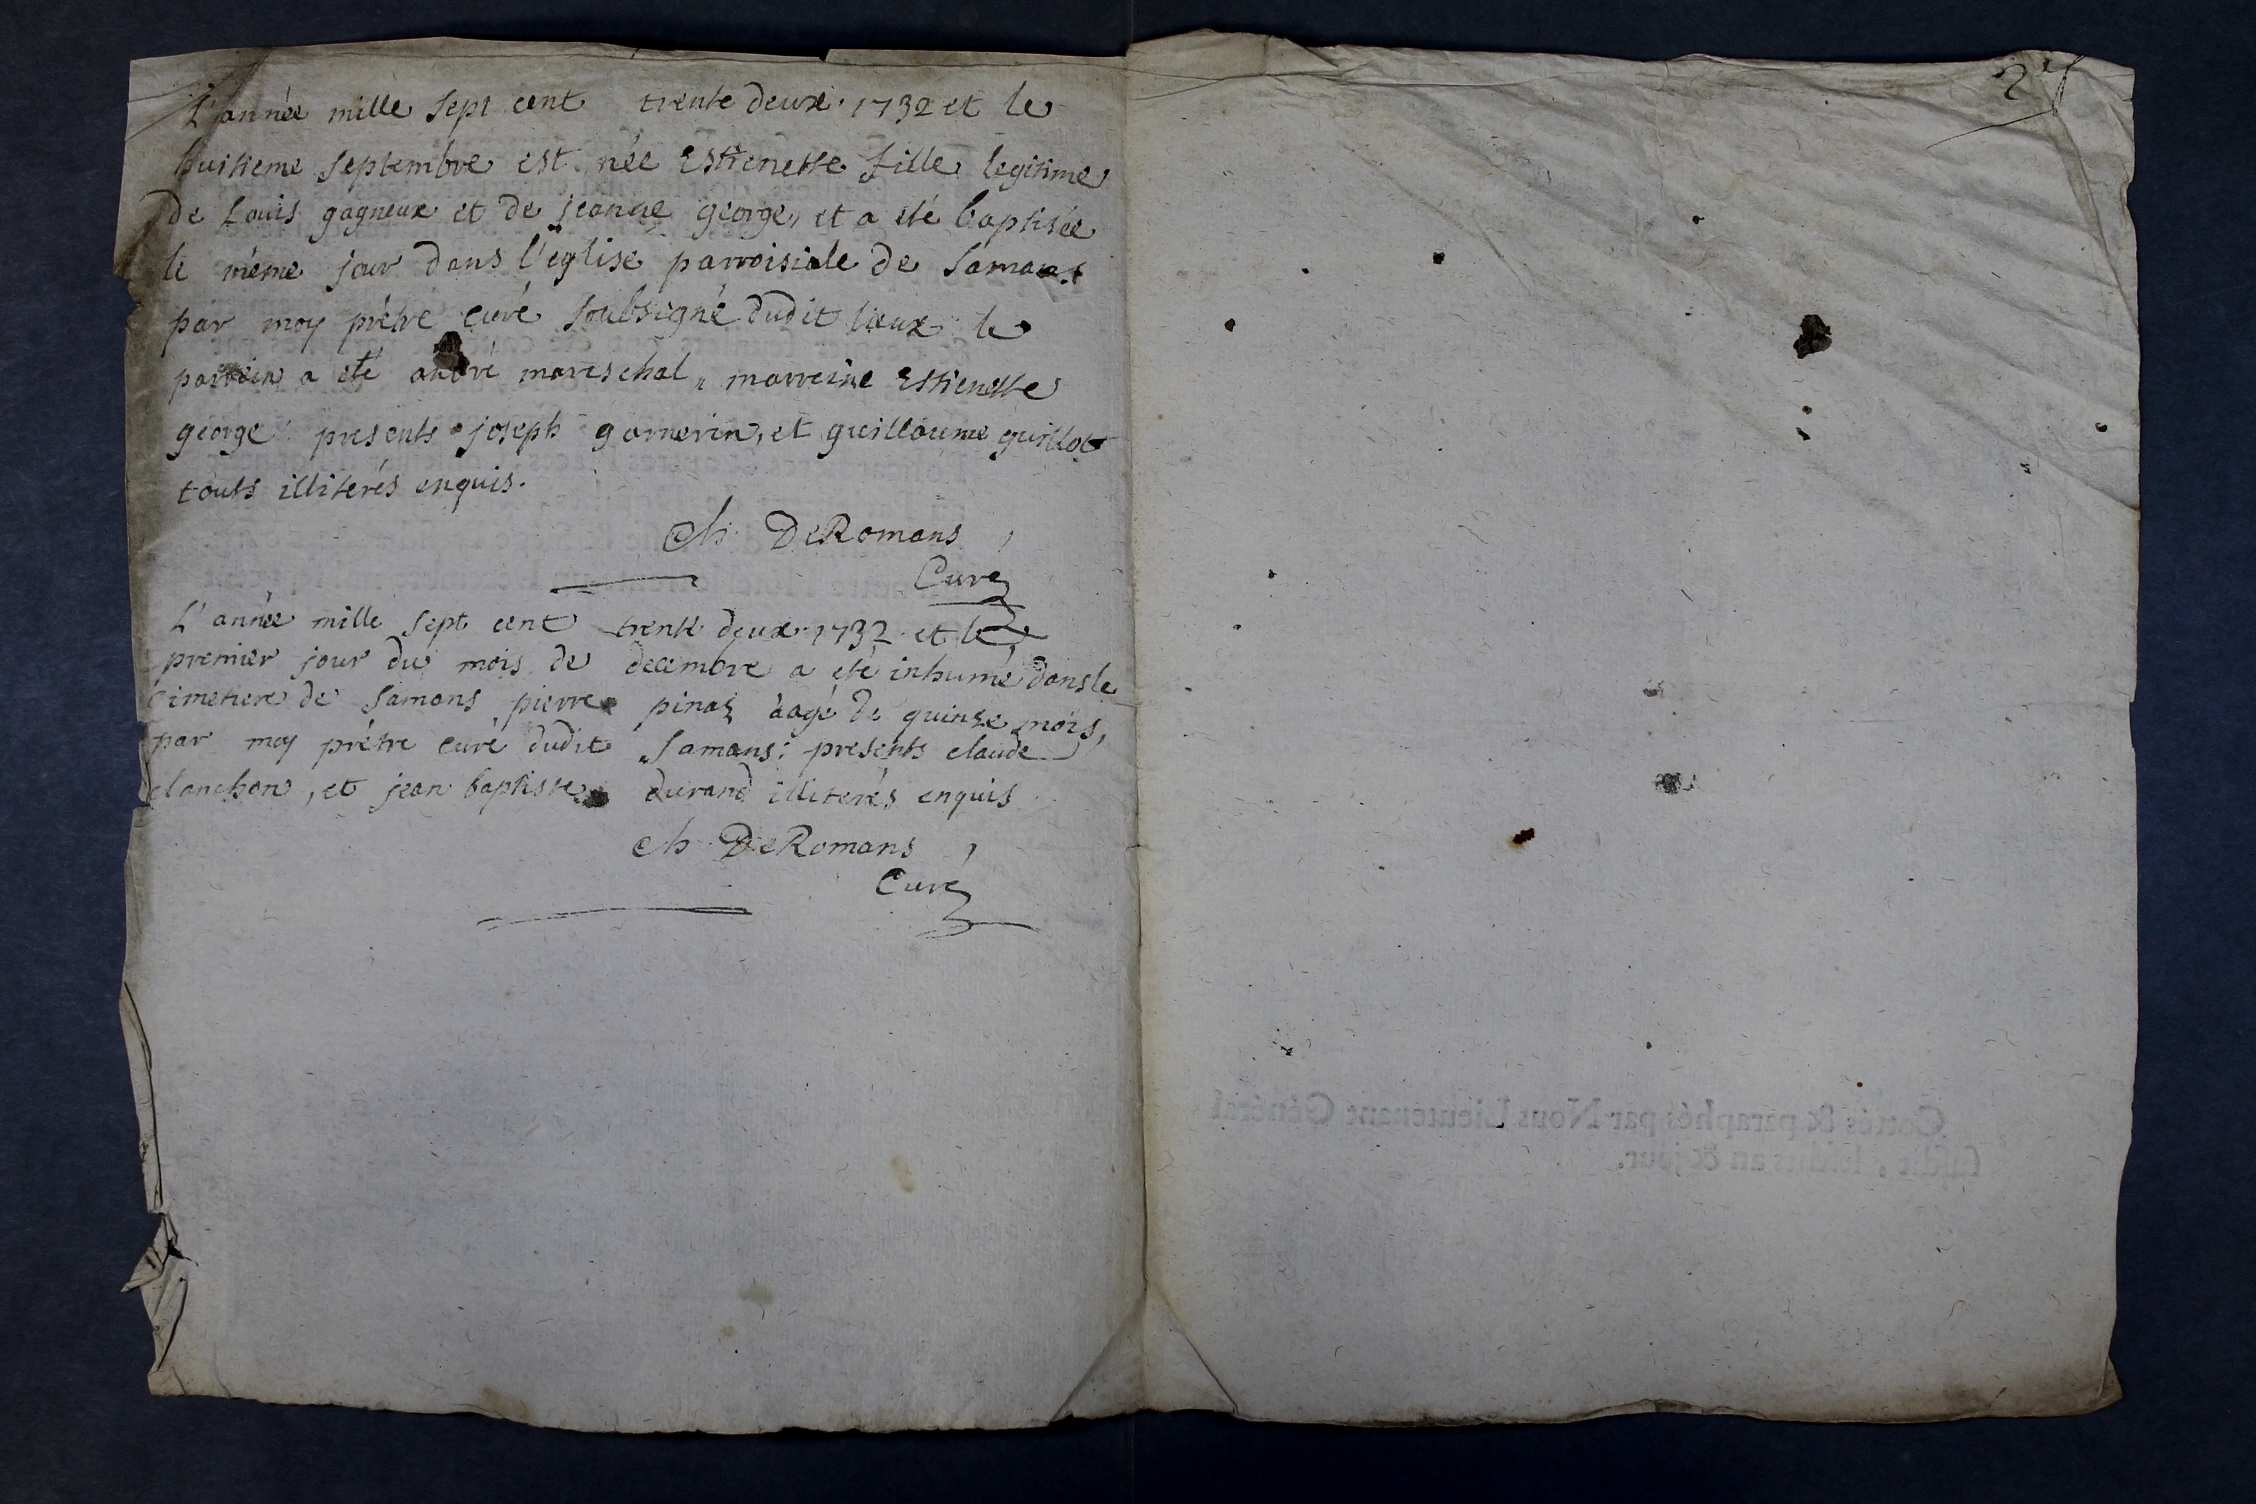 L'année mille sept cent trente deux 1732 et le
huitieme septembre est née Estienette fille legitime
de Louis gagneux et de jeanne george, et a eté baptisée
le méme jour dans l'eglise parroisiale de Samans
par moy prétre curé soubsigné dudit lieux le
parrein a eté andré mareschal, marreine Estienette
george presents joseph garnerin, et guillaume guillot
touts illiterés enquis.
Ch DeRomans
Curé
L'année mille sept cent trente deux 1732 et le
premier jour du mois de decembre a eté inhumé dans le
cimetiere de Samans pierre pinaz aagé de quinze mois,
par moy prétre curé dudit Samans: presents claude
clanchon, et jean baptiste durand illiterés enquis
Ch DeRomans
Curé
2
Cottés & paraphés par Nous Lieutenant Général
susdit, susdits an & jour.